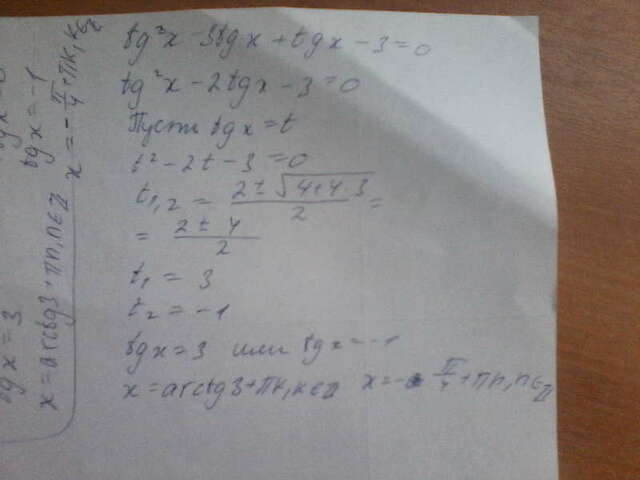 tg²x - 3tgx + tgx - 3 = 0
tg²x - 2tgx - 3 = 0
Пусть tgx = t
t² - 2t - 3 = 0
t₁,₂ = (2 ± √(4+4·3))/2 =
= (2 ± 4)/2
t₁ = 3
t₂ = -1
tgx = 3 или tgx = -1
x = arctg3 + πk, k∈Z x = -π/4 + πn, n∈Z
tgx = -1
x = -π/4 + πk, k∈Z
tgx = 3
x = arctg3 + πn, n∈Z